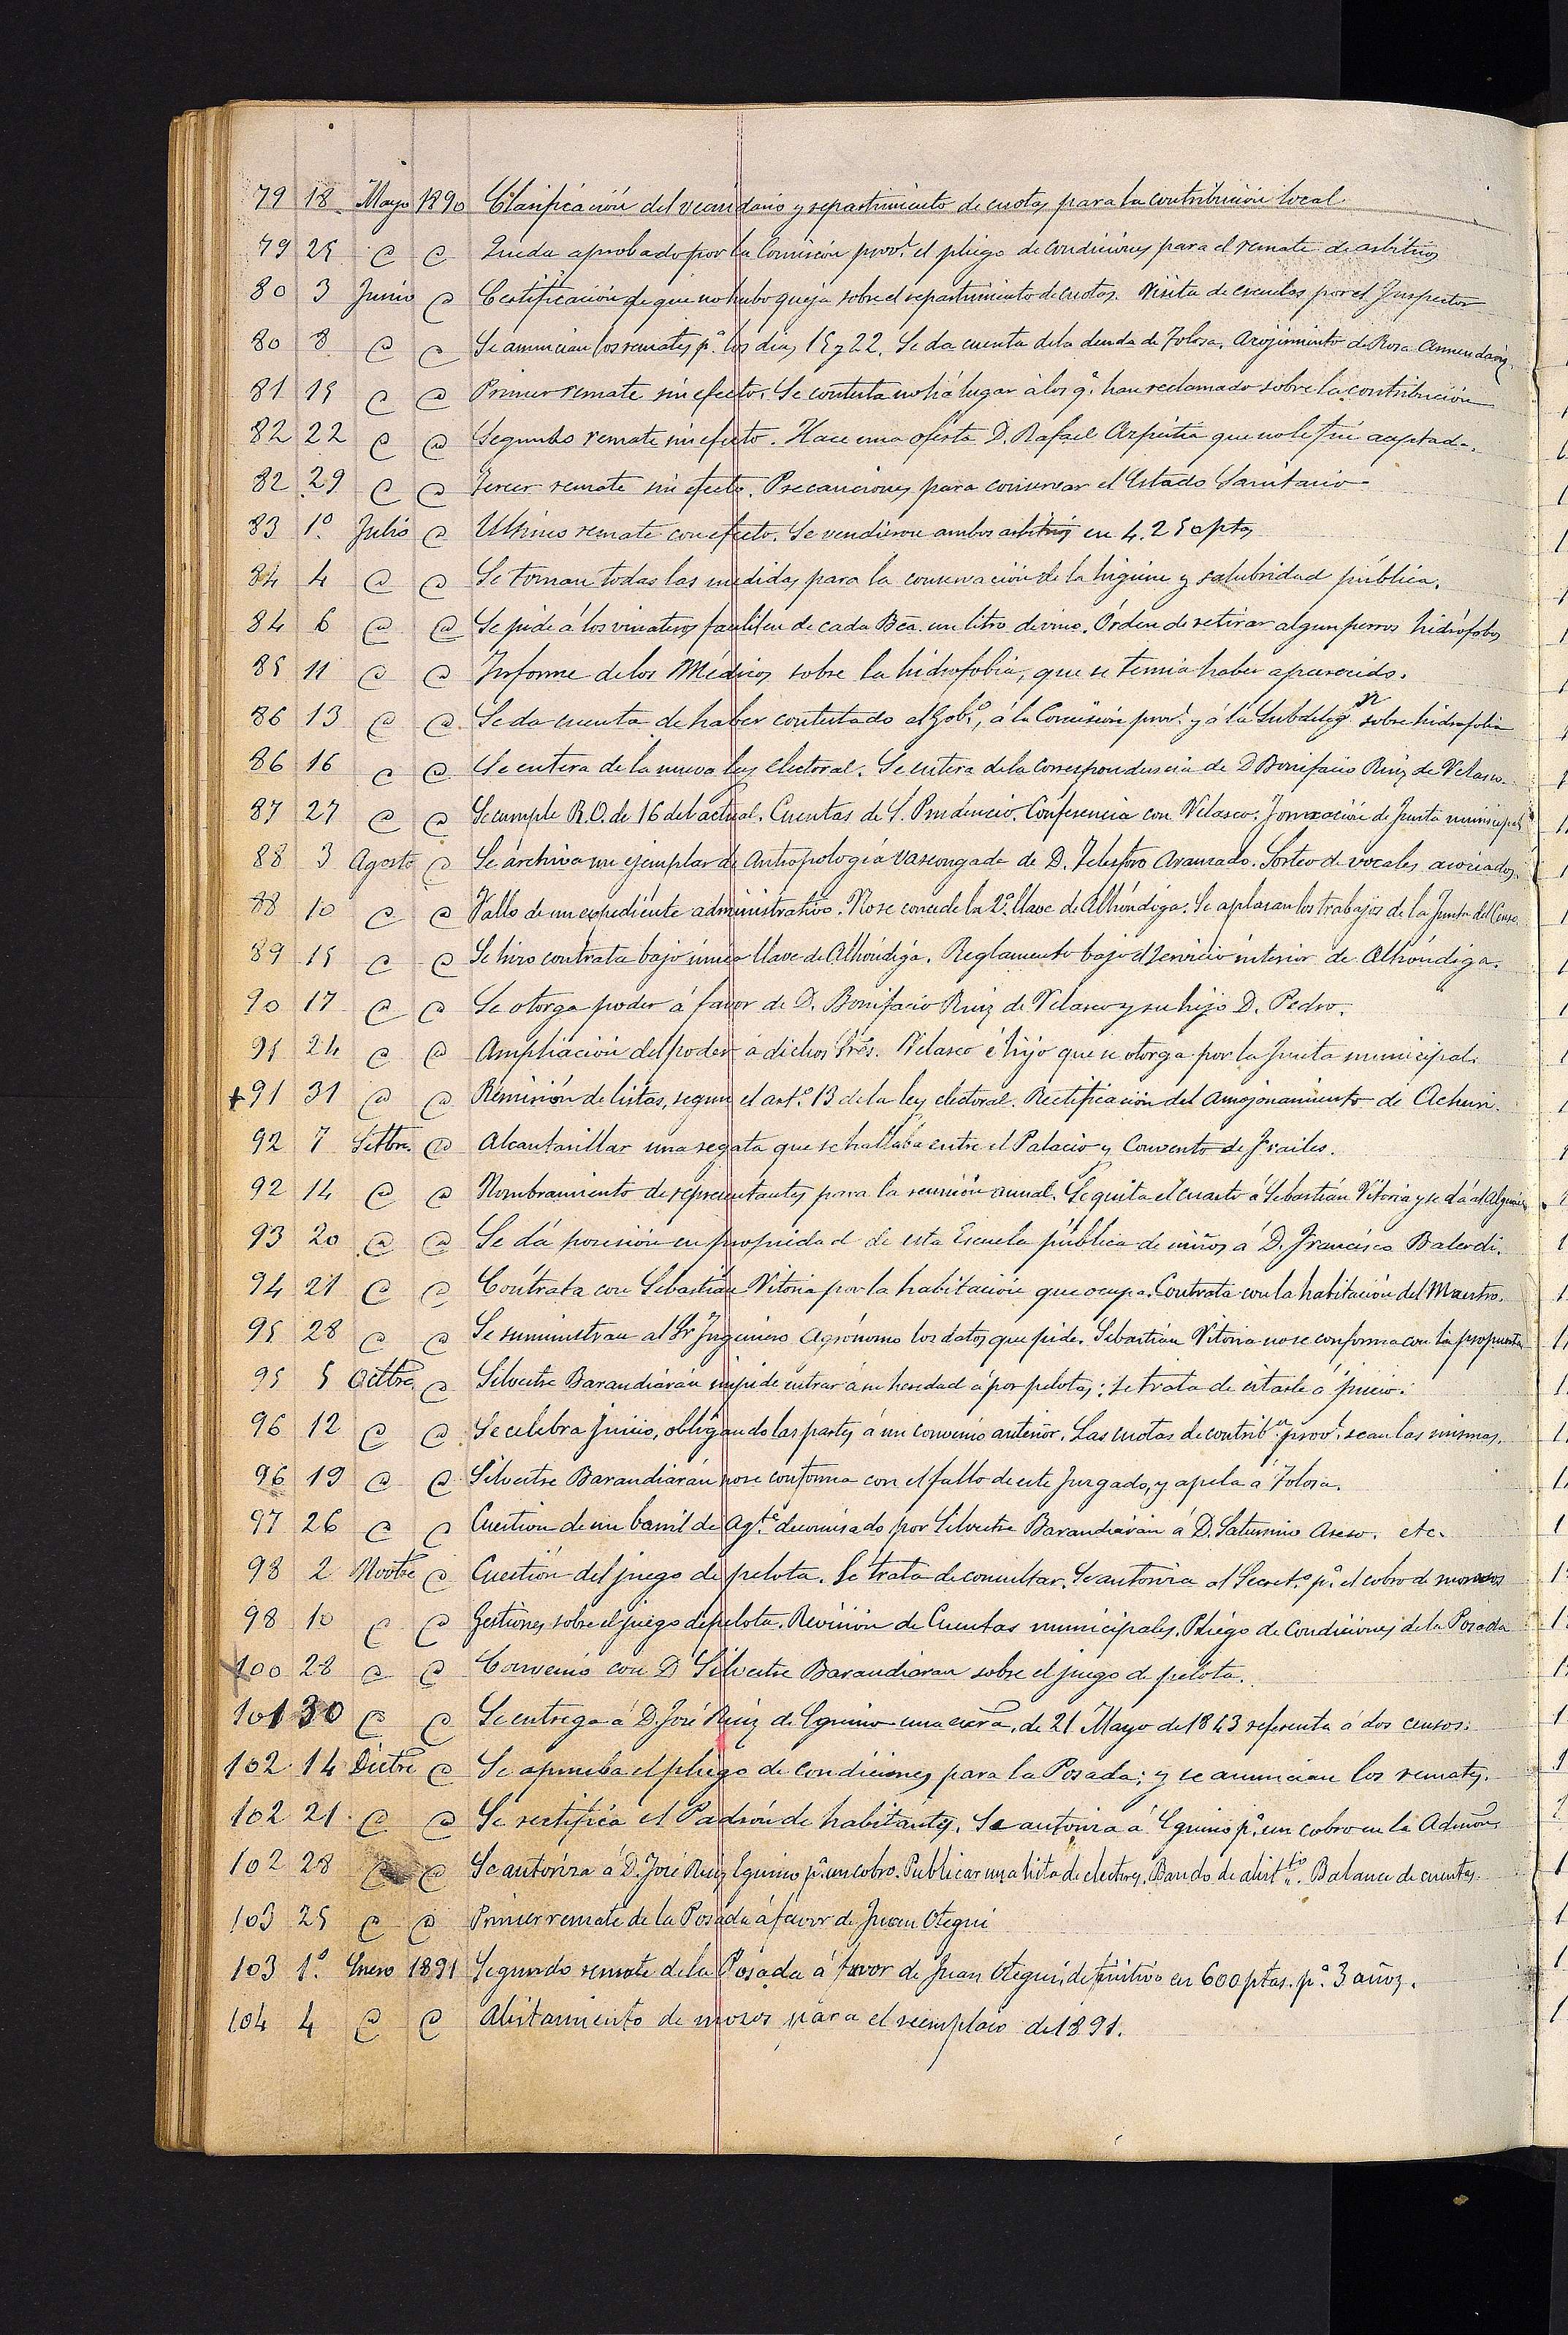 79 18 Mayo 1890 Clasificación del vecindario y repartimiento de cuotas para la contribución local.
79 25 @ @ Queda aprobado por la Comisión provl. el pliego de condiciones para el remate de arbitrios
80 3 Junio @ Certificación de que no hubo queja sobre el repartimiento de cuotas. Visita de escuelas por el Inspector
80 8 @ @ Se anuncian los remates pª. los dias 15 y 22. Se da cuenta de la deuda de Tolosa. de Rosa
81 15 @ @ Primer remate sin efecto. Se contesta no há lugar á los q.e han reclamado sobre la contribución
82 22 @ @ Segundo remate sin efecto. Hace una oferta D. Rafael Azpeitia que no le fué aceptada.
82 29 @ @ Tercer remate sin efecto. Precauciones para conservar el Estado Sanitario
83 1º. Julio @ Ultimo remate con efecto. Se vendieron ambos arbitrios en 4.250 ptas
84 4 @ @ Se toman todas las medidas para la conservación de la higiene y salubridad pública.
84 6 @ @ Se pide á los vinateros faciliten de cada Bca. un litro de vino. Órden de retirar algun perros hidrófobos
85 11 @ @ Informe de los Médicos sobre la hidrofobia, que se temia haber aparecido.
86 13 @ @ Se da cuenta de haber contestado al Gob.º, á la Comisión provl. y á la Subdeleg.n sobre hidrofobia
86 16 @ @ Se entera de la nueva ley electoral. Se entera de la correspondencia de D Bonifacio Ruiz de Velasco.
87 27 @ @ Se cumple R.O. de 16 del actual. Cuentas de S. Prudencio. Conferencia con Velasco. Formación de Junta municipal
88 3 Agosto @ Se archiva un ejemplar de Antropologia vascongada de D. Telesforo Aranzado. Sorteo de vocales asociados.
88 10 @ @ Fallo de un expediente administrativo. No se concede la 2ª. llave de Alhóndiga. Se aplazan los trabajos de la Junta del Censo.
89 15 @ @ Se hizo contrata bajo única llave de Alhóndiga. Reglamento bajo el servicio interior de Alhóndiga.
90 17 @ @ Se otorga poder á favor de D. Bonifacio Ruiz de Velasco y su hijo D. Pedro.
91 24 @ @ Ampliación del poder á dichos Sres. Velasco é hijo que se otorga por la Junta municipal.
+ 91 31 @ @ Remisión de listas, segun el artº. 13 de la ley electoral. Rectificación del amojonamiento de Achuri.
92 7 Setbre. @ Alcantarillar una regata que se hallaba entre el Palacio y Convento de Frailes.
92 14 @ @ Nombramiento de representantes para la reunión anual. Se quita el cuarto á Sebastián Vitoria y se dá al Alguacil
93 20 @ @ Se dá posesión en propiedad de esta Escuela pública de niños á D. Francisco Balerdi.
94 21 @ @ Contrata con Sebastián Vitoria por la habitación que ocupa. Contrata con la habitación del Maestro.
95 28 @ @ Se suministran al Sr Ingeniero Agrónomo los datos que pide. Sebastián Vitoria no se conforma con la propuesta
95 5 Octbre. @ Silvestre Barandiarán impide entrar á su heredad á por pelotas: se trata de citarle á juicio.
96 12 @ @ Se celebra juicio, obligando las partes á un convenio anterior. Las cuotas de contrib.n provl. sean las mismas.
96 19 @ @ Silvestre Barandiarán no se conforma con el fallo de este Juzgado, y apela á Tolosa.
97 26 @ @ Cuestion de un barril de Agte. decomisado por Silvestre Barandiarán á D. Saturnino Aseso. etc.
98 2 Novbre @ Cuestión del juego de pelota. Se trata de consultar. Se autoriza al Secretº. pª. el cobro de morosos
98 10 @ @ Gestiones sobre el juego de pelota. Revisión de Cuentas municipales. Pliego de Condiciones de la Posada
100 28 @ @ Convenio con D Silvestre Barandiaran sobre el juego de pelota.
101 30 @ @ Se entrega á D. José Ruiz de Eguino una de 21 Mayo de 1843 referenta á dos censos.
102 14 Dicbre @ Se aprueba el pliego de condiciones para la Posada; y se anuncian los remates.
102 21 @ @ Se rectifica el Padrón de habitantes. Se autoriza á Eguino pª. un cobro en la Admón
102 28 @ @ Se autoriza á D. José Ruiz Eguino pª. un cobro. Publicar una lista de electores. Bando de alistto. Balance de cuentas.
103 25 @ @ Primer remate de la Posada á favor de Juan Otegui
103 1º. Enero 1891 Segundo remate de la Posada á favor de Juan Otegui, definitivo en 600 ptas. pª. 3 años.
104 4 @ @ Alistamiento de mozos para el reemplazo de 1891.